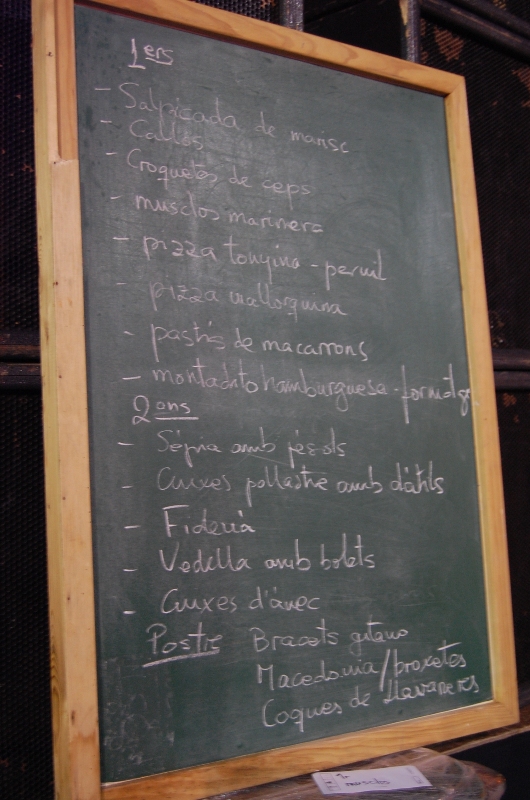 1ers
- Salpicada de marisc
- Callos
- Croquetes de ceps
- musclos marinera
- pizza tonyina - pernil
- pizza mallorquina
- pastís de macarrons
- montadito hamburguesa - formatge
2ons
- Sépia amb pèsols
- Cuixes pollastre amb dàtils
- Fideuà
- Vedella amb bolets
- Cuixes d'ànec
Postre Bracets gitano
Macedonia/broxetes
Coques de Llavaneres